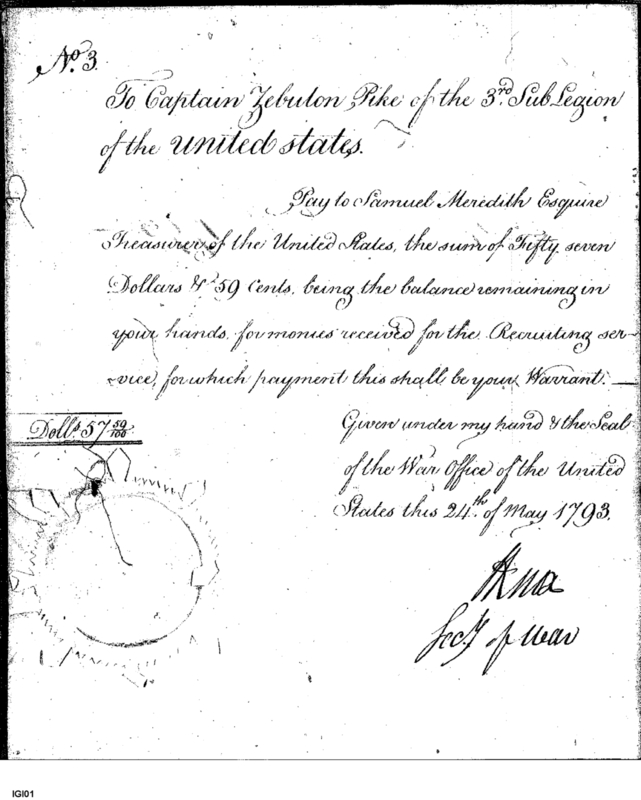 No. 3.
To Captain Zebulon Pike of the 3rd. Sub Legion
of the United States.
Pay to Samuel Meredith Esquire
Treasurer of the United States, the sum of Fifty seven
Dollars & 59 Cents, being the balance remaining in
your hands, for monies received for the Recruiting ser-
vice, for which payment this shall be your Warrant.
Dolls. 57 59/100
Given under my hand & the Seal
of the War Office of the United
States this 24th. of May 1793.
HKnox
Secy of War
IGI01